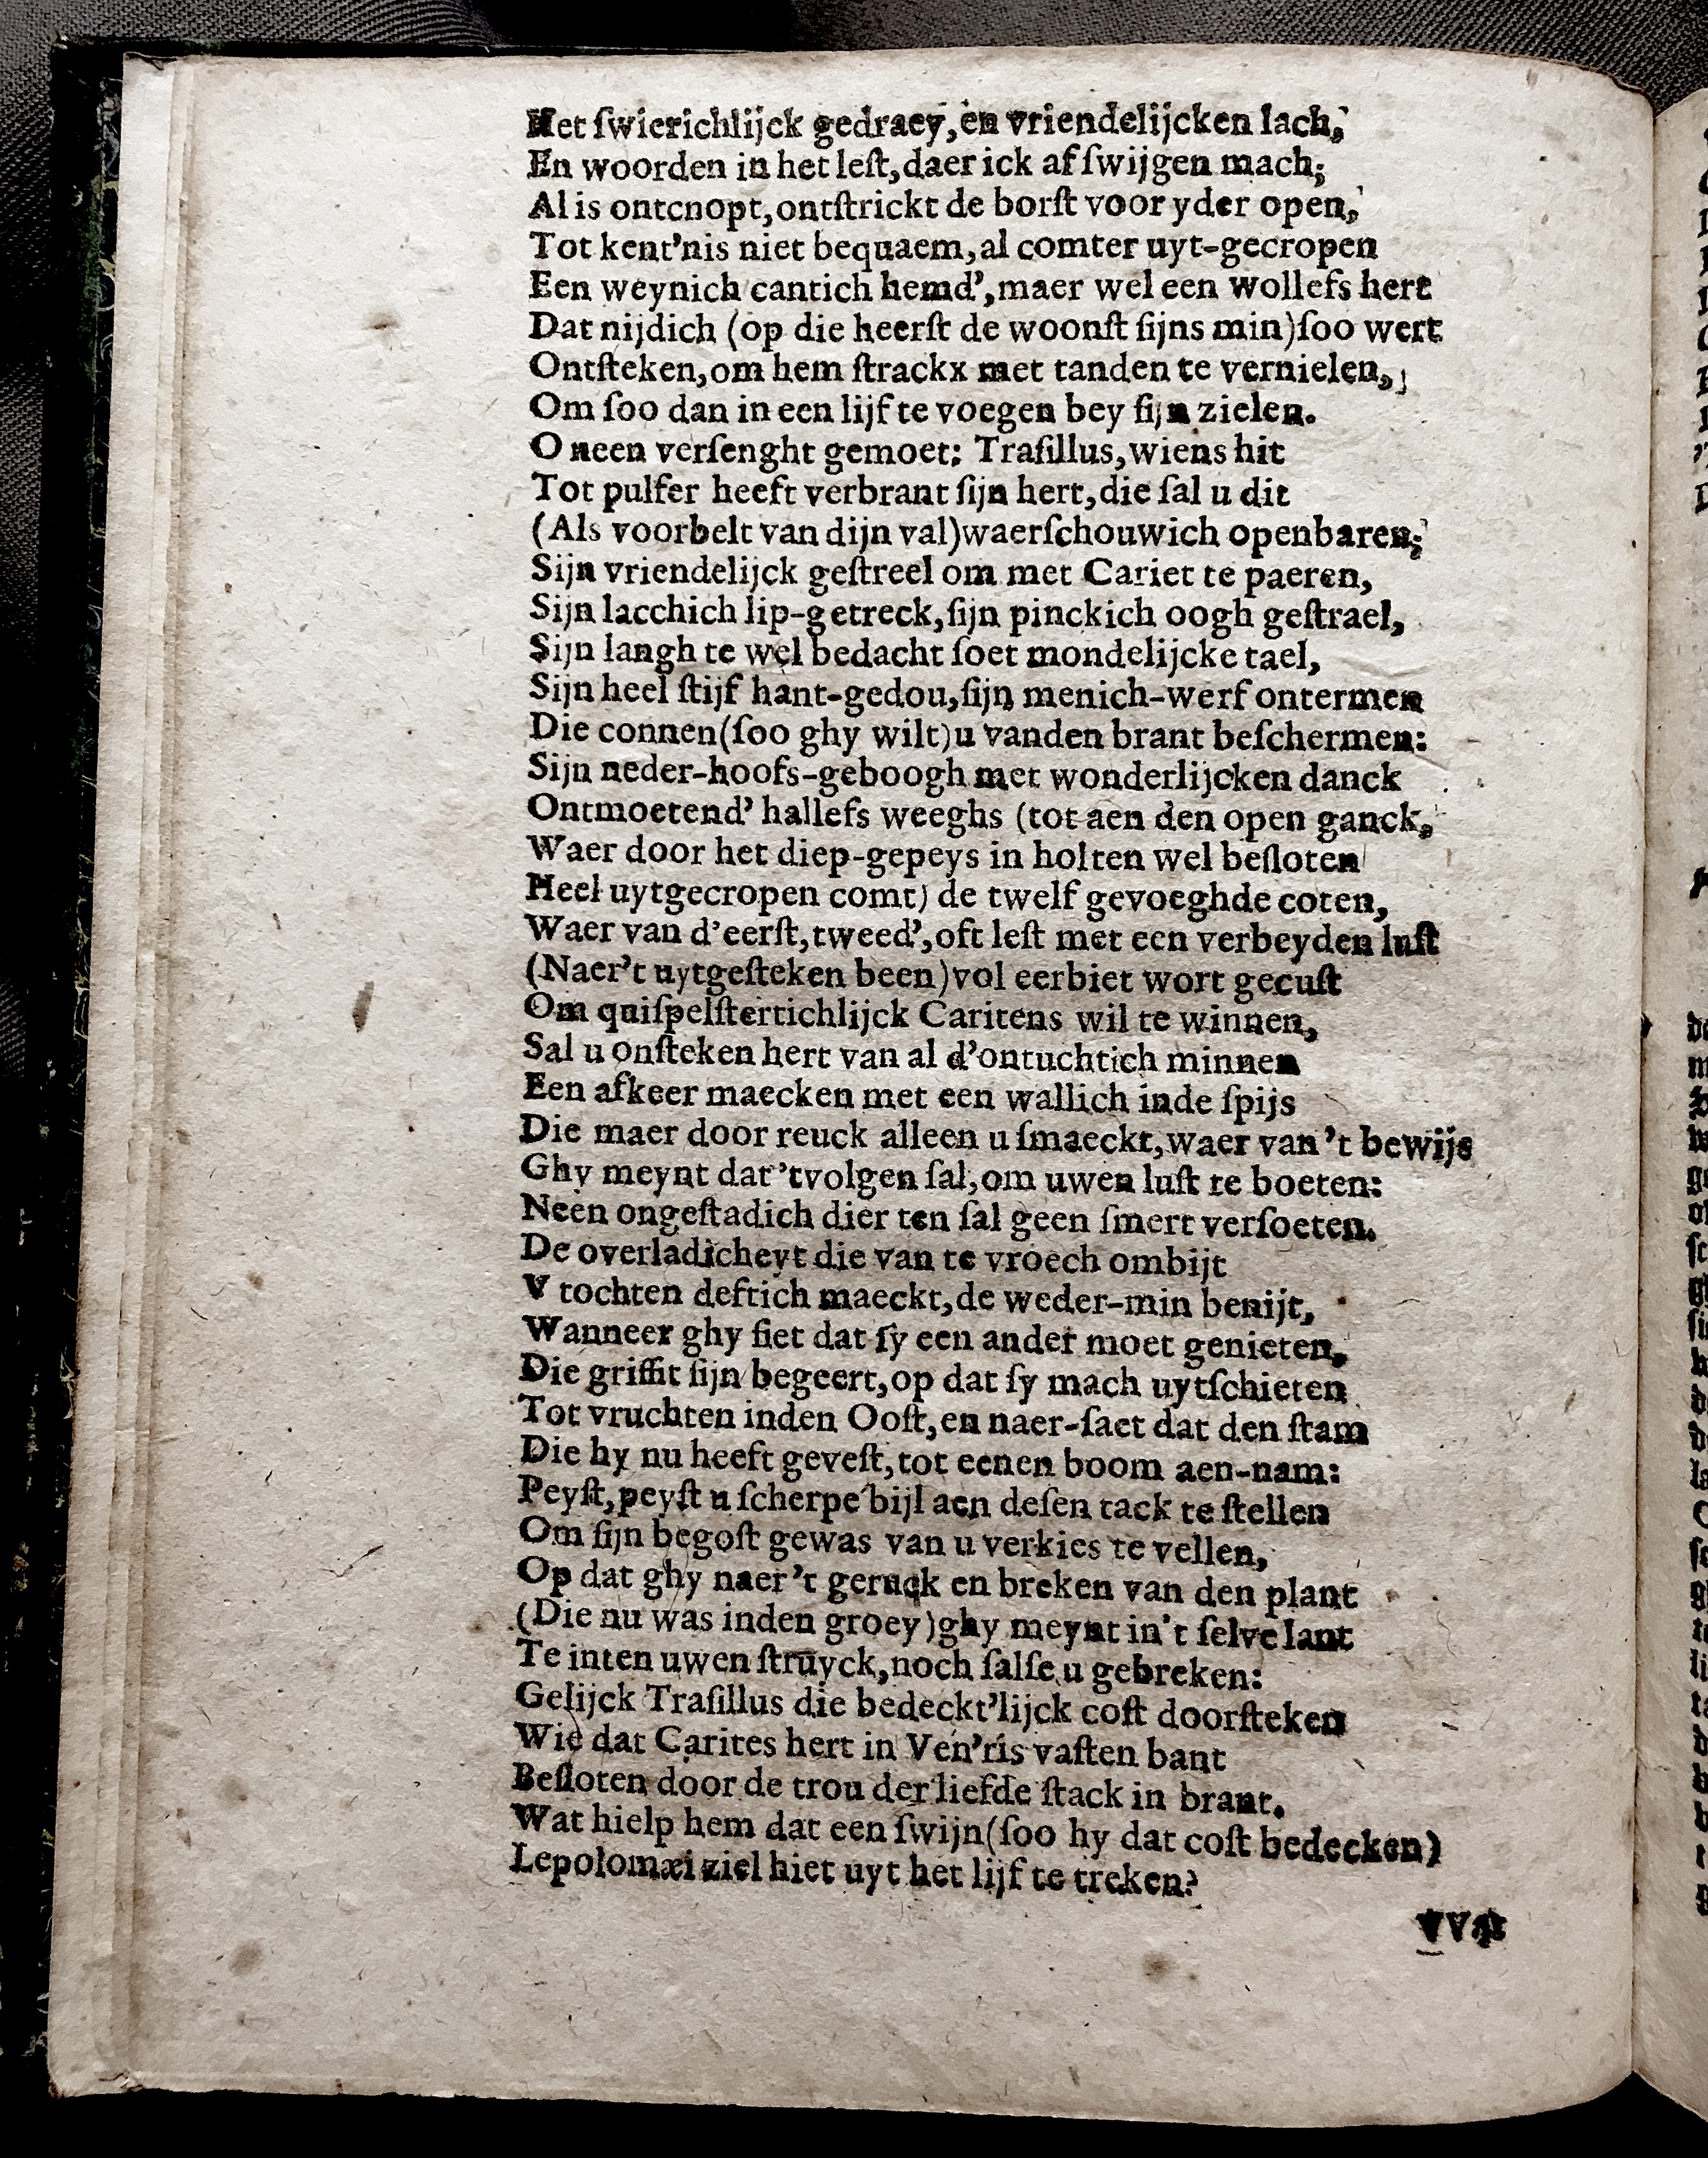 Het ſwierichlijck gedraey, en vriendelijcken lach,
En woorden in het leſt, daer ick af ſwijgen mach;
Al is ontcnopt, ontſtrickt de borſt voor yder open,
Tot kent'nis niet bequaem, al comter uyt-gecropen
Een weynich cantich hemd', maer wel een wollefs hert
Dat nijdich (op die heerſt de woonſt ſijns min) ſoo wert
Ontſteken, om hem ſtrackx met tanden te vernielen,
Om ſoo dan in een lijf te voegen bey ſijn zielen.
O neen verſenght gemoet: Traſillus, wiens hit
Tot pulfer heeft verbrant ſijn hert, die ſal u dit
(Als voorbelt van dijn val) waerſchouwich openbaren;
Sijn vriendelijck geſtreel om met Cariet te paeren,
Sijn lacchich lip-getreck, ſijn pinckich oogh geſtrael,
Sijn langh te wel bedacht ſoet mondelijcke tael,
Sijn heel ſtijf hant-gedou, ſijn menich-werf ontermen
Die connen (ſoo ghy wilt) u vanden brant beſchermen:
Sijn neder-hoofs-geboogh met wonderlijcken danck
Ontmoetend' hallefs weeghs (tot aen den open ganck,
Waer door het diep-gepeys in holten wel beſloten
Heel uytgecropen comt) de twelf gevoeghde coten,
Waer van d'eerſt, tweed', oft leſt met een verbeyden luſt
(Naer't uytgeſteken been) vol eerbiet wort gecuſt
Om quiſpelſtertichlijck Caritens wil te winnen,
Sal u onſteken hert van al d'ontuchtich minnen
Een afkeer maecken met een wallich inde ſpijs
Die maer door reuck alleen u ſmaeckt, waer van 't bewijs
Ghy meynt dat 'tvolgen ſal, om uwen luſt te boeten:
Neen ongeſtadich dier ten ſal geen ſmert verſoeten.
De overladicheyt die van te vroech ombijt
V tochten deftich maeckt, de weder-min benijt,
Wanneer ghy ſiet dat ſy een ander moet genieten,
Die griffit ſijn begeert, op dat ſy mach uytſchieten
Tot vruchten inden Ooſt, en naer-ſaet dat den ſtam
Die hy nu heeft geveſt, tot eenen boom aen-nam:
Peyſt, peyſt u ſcherpe bijl aen deſen tack te ſtellen
Om ſijn begoſt gewas van u verkies te vellen,
Op dat ghy naer 't geruck en breken van den plant
(Die nu was inden groey) ghy meynt in't ſelve lant
Te inten uwen ſtruyck, noch ſalſe u gebreken:
Gelijck Traſillus die bedeckt'lijck coſt doorſteken
Wie dat Carites hert in Ven'ris vaſten bant
Beſloten door de trou der liefde ſtack in brant.
Wat hielp hem dat een ſwijn (ſoo hy dat coſt bedecken)
Lepolomæi ziel hiet uyt het lijf te treken?
VVat